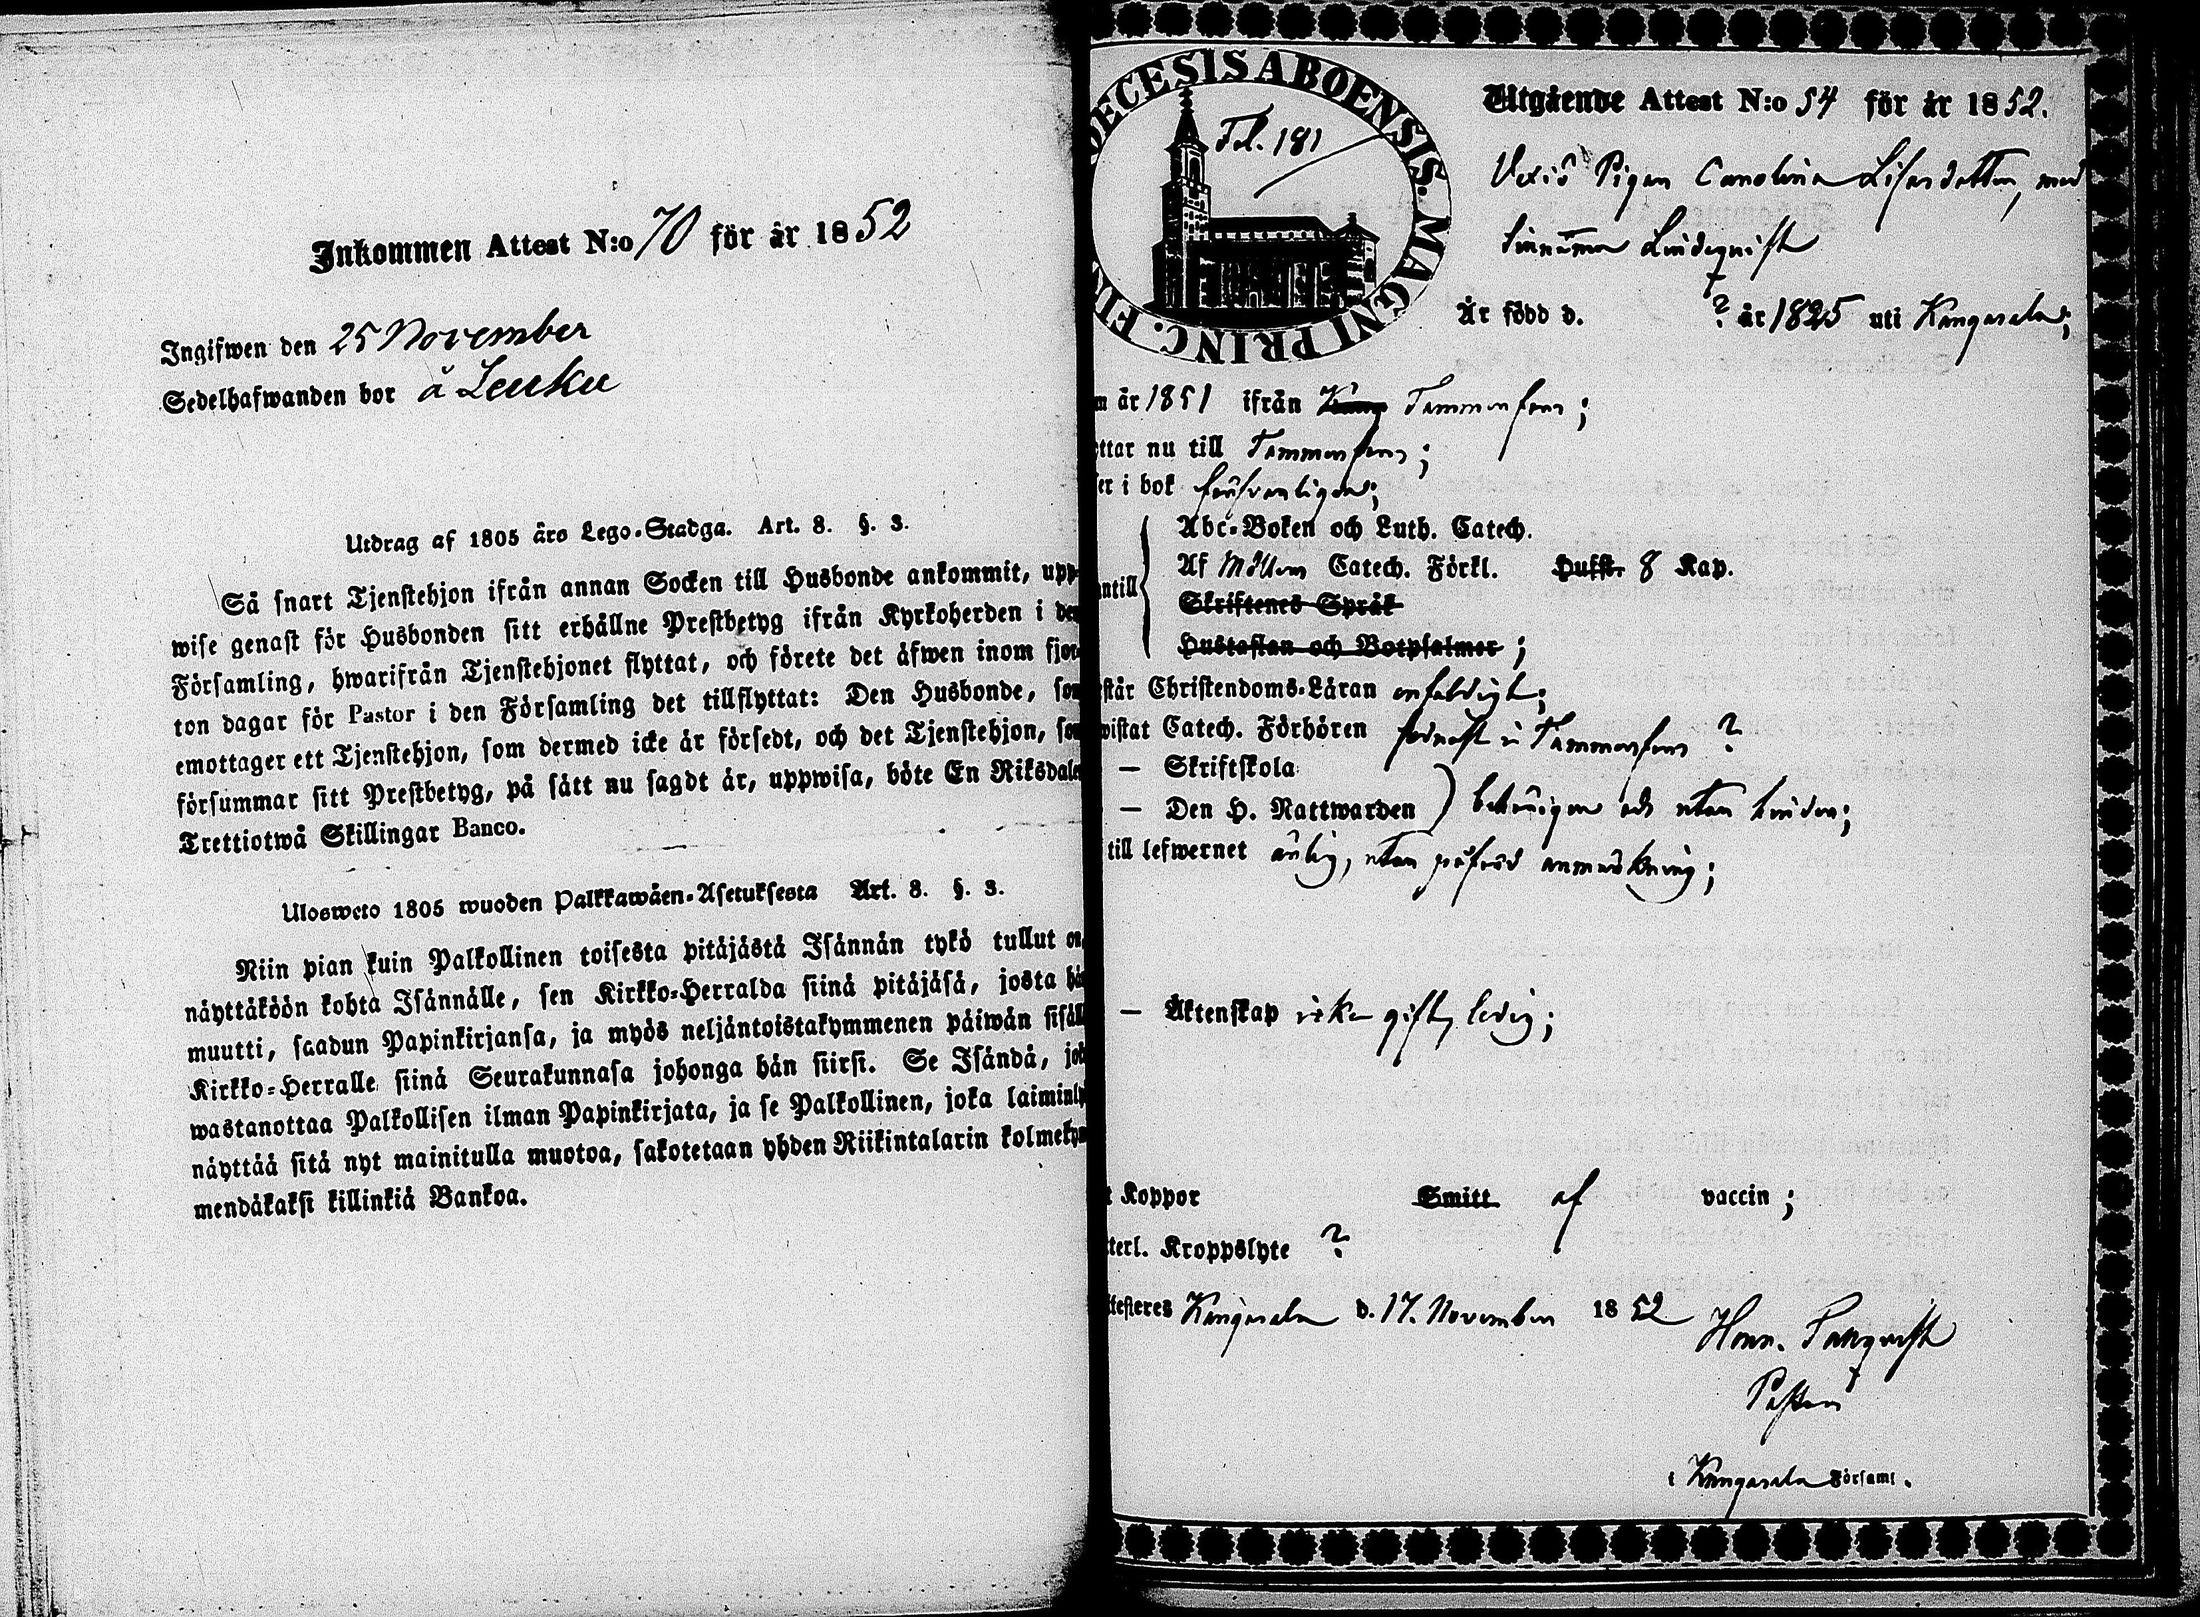 Inkommen Attest N:o 70 för år 1852
Ingifwen den 25 November
Sedelhafwanden bor å Leuku
Utdrag af 1805 års Lego-Stadga. Art. 8. §. 3.
Så snart Tjenstehjon ifrån annan Socken till Husbonde ankommit, upp-
wise genast för Husbonden sitt erhållne Prestbetyg ifrån Kyrkoherden i den
Församling, hwarifrån Tjenstehjonet flyttat, och förete det äfwen inom fjor-
ton dagar för Pastor i den Församling det tillflyttat: Den Husbonde, som
emottager ett Tjenstehjon, som dermed icke är försedt, och det Tjenstehjon, som
försummar sitt Prestbetyg, på sätt nu sagdt är, uppwisa, böte En Riksdaler
Trettiotwå Skillingar Banco.
Ulosweto 1805 wuoden Palkkawäen-Asetuksesta Art. 8. §. 3.
Niin pian kuin Palkollinen toisesta pitäjästä Isännän tykö tullut on,
näyttäköön kohta Isännälle, sen Kirkko-Herralda siinä pitäjäsä, josta hän
muutti, saadun Papinkirjansa, ja myös neljäntoistakymmenen päiwän sisäll
Kirkko-Herralle siinä Seurakunnasa johonga hän siirsi. Se Isändä, jok
wastanottaa Palkollisen ilman Papinkirjata, ja se Palkollinen, joka laiminly
näyttää sitä nyt mainitulla muotoa, sakotetaan yhden Riikintalarin kolmekym
mendäkaksi killinkiä Bankoa.
DECESIS ABOENSIS. MAGNI PRINC. FIN
Fol. 181
Utgående Attest N:o 54 för år 1852.
Pigan Carolina Lisasdotter, med
tinnamn Lindeqvist
Är född d. ? år 1825 uti Kangasala;
m år 1851 ifrån Tammerfors;
ttar nu till Tammerfors;
er i bok försvarligen;
ntill
Abc-Boken och Luth. Catech.
Af Möllers Catech. Förkl. Hufst. 8 Kap.
Skriftenes Språk
Hustaflan och Botpsalmer;
står Christendoms-Läran enfaldigt;
wistat Catech. Förhören sednast i Tammerfors ?
— Skriftskola
— Den H. Nattwarden behörigen och utan hinder;
till lefwernet ärlig, utan påförd anmärkning;
— Äktenskap icke gift, ledig;
t Koppor Smitt af vaccin;
tterl. Kroppslyte ?
ttesteres Kangasala d. 17. November 1852
Pastor
i Kangasala Församl.